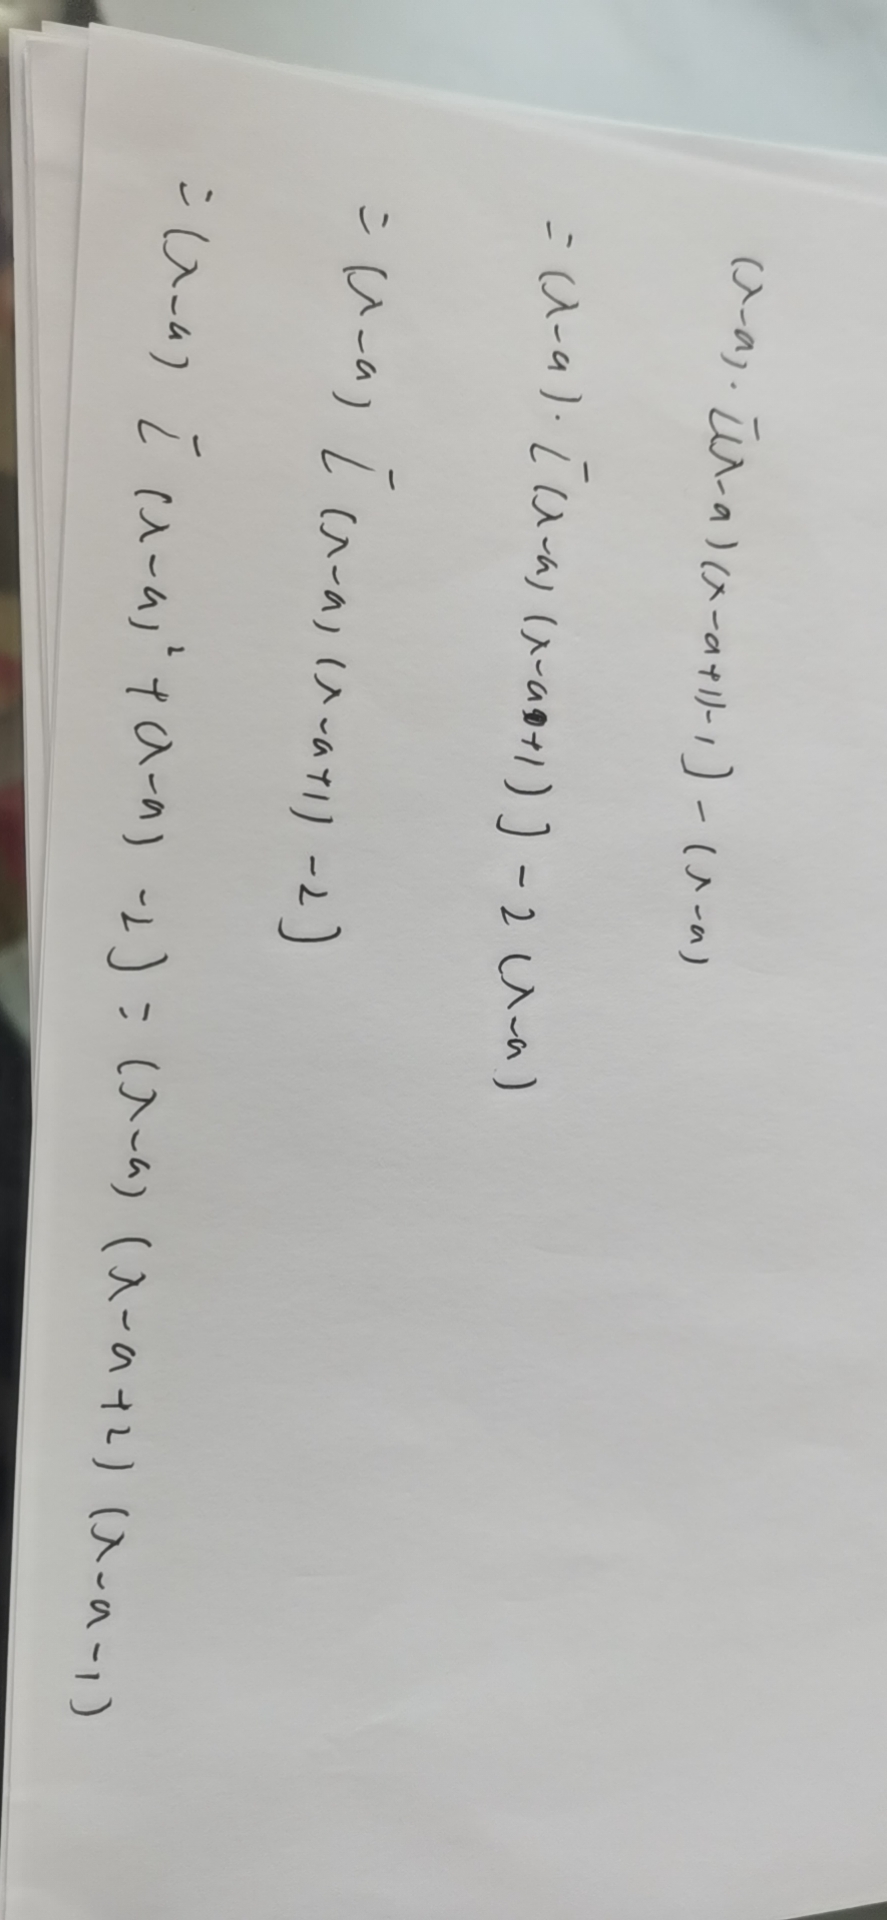 (λ-a)·[(λ-a)(λ-a+1)-1]-(λ-a)
=(λ-a)·[(λ-a)(λ-a+1)]-2(λ-a)
=(λ-a)[(λ-a)(λ-a+1)-2]
=(λ-a)[(λ-a)²+(λ-a)-2]=(λ-a)(λ-a+2)(λ-a-1)